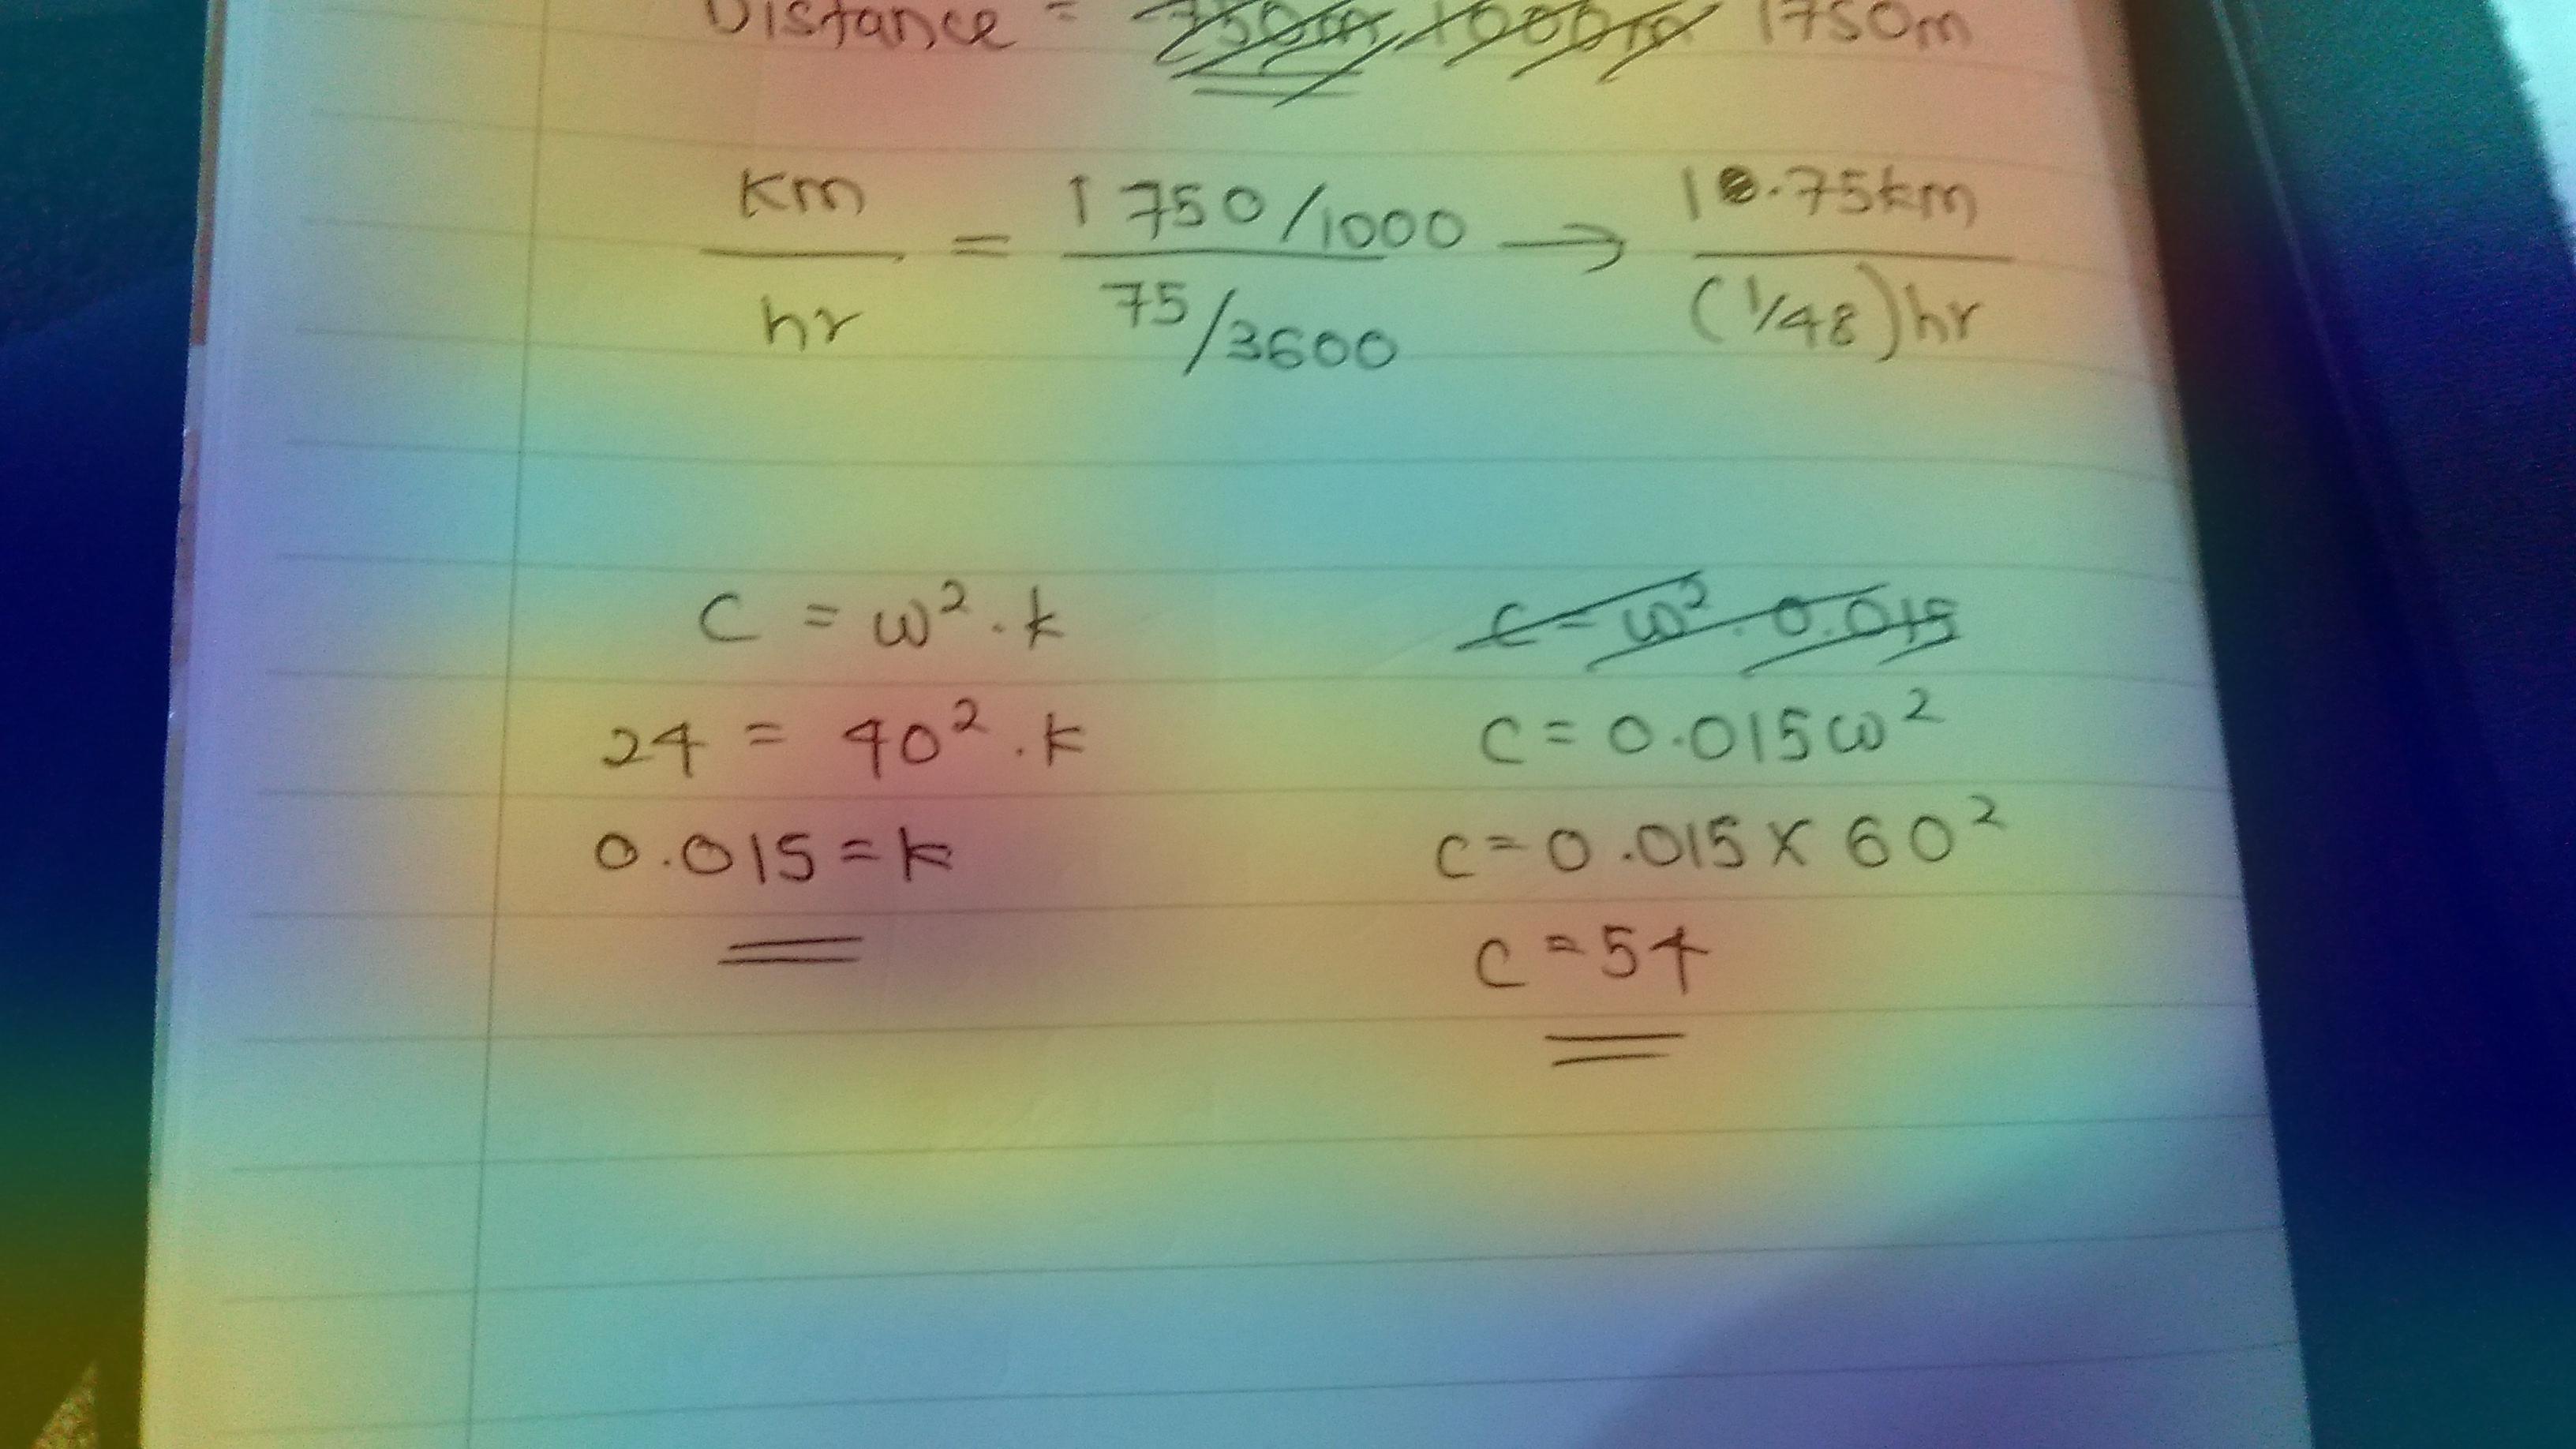 Distance = 750m 1000m 1750m
km/hr = (1750/1000)/(75/3600) → 1.75km/(1/48)hr
C = ω² . k
24 = 40² . k
0.015 = k
C = ω² . 0.015
C = 0.015ω²
C = 0.015 x 60²
C = 54